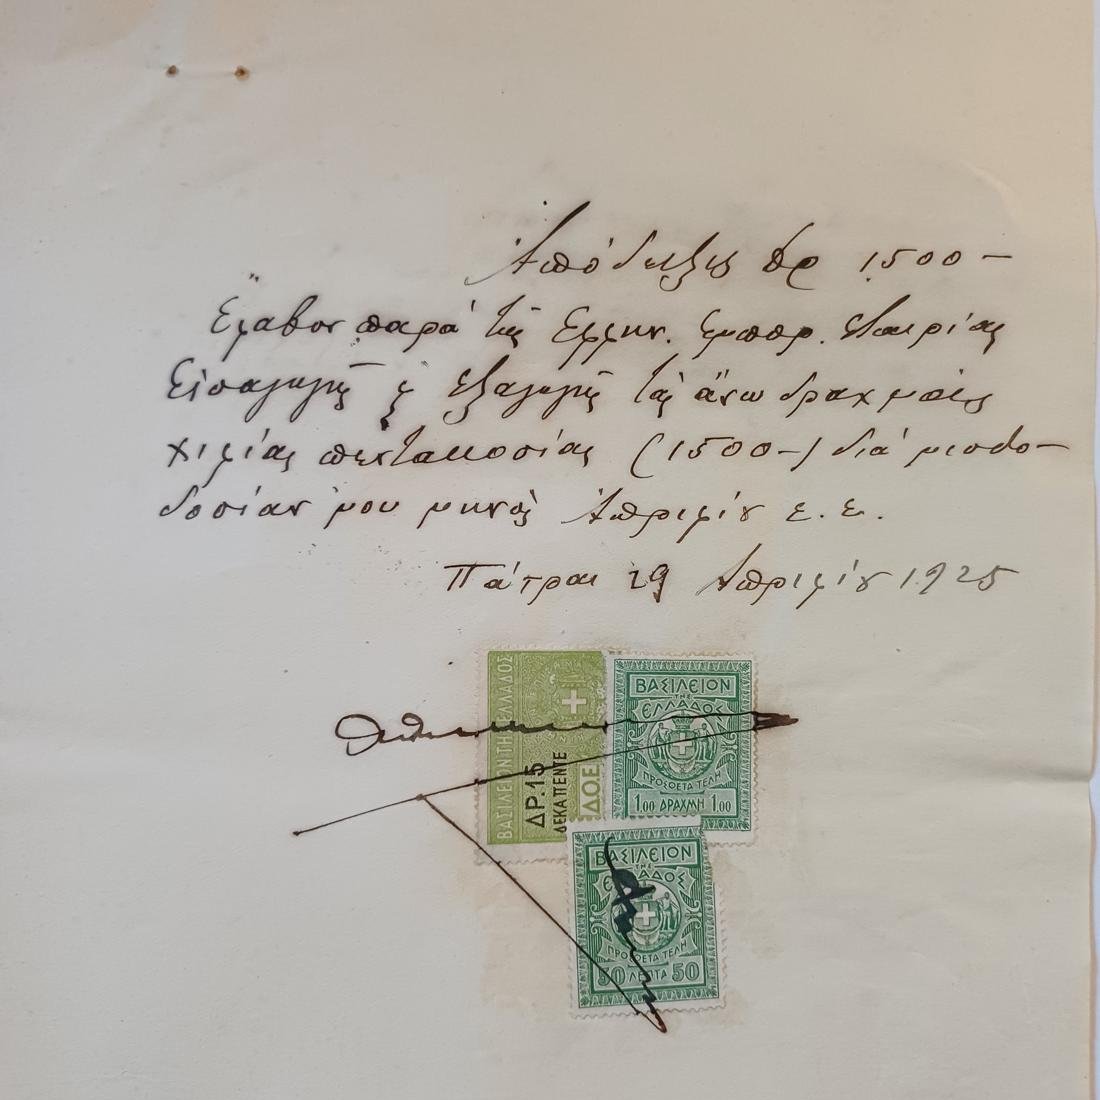 Ἀπόδειξις δρ 1500 –
Ἔλαβον παρὰ τῆς Ελλην. Εμπορ. Εταιρίας
Εἰσαγωγῆς & Ἐξαγωγῆς τὰς ἄνω δραχμὰς
χιλίας πεντακοσίας (1500–) διὰ μισθο–
δοσίαν μου μηνὸς Ἀπριλίου ε.ε.
Πάτραι 29 Ἀπριλίου 1925
ΒΑΣΙΛΕΙΟΝ ΤΗΣ ΕΛΛΑΔΟΣ
ΔΡ.15
ΔΕΚΑΠΕΝΤΕ
Δ.Ο.Ε
ΒΑΣΙΛΕΙΟΝ
ΤΗΣ
ΕΛΛΑΔΟΣ
ΠΡΟΣΘΕΤΑ ΤΕΛΗ
1.00 ΔΡΑΧΜΗ 1.00
ΒΑΣΙΛΕΙΟΝ
ΤΗΣ
ΕΛΛΑΔΟΣ
ΠΡΟΣΘΕΤΑ ΤΕΛΗ
50 ΛΕΠΤΑ 50